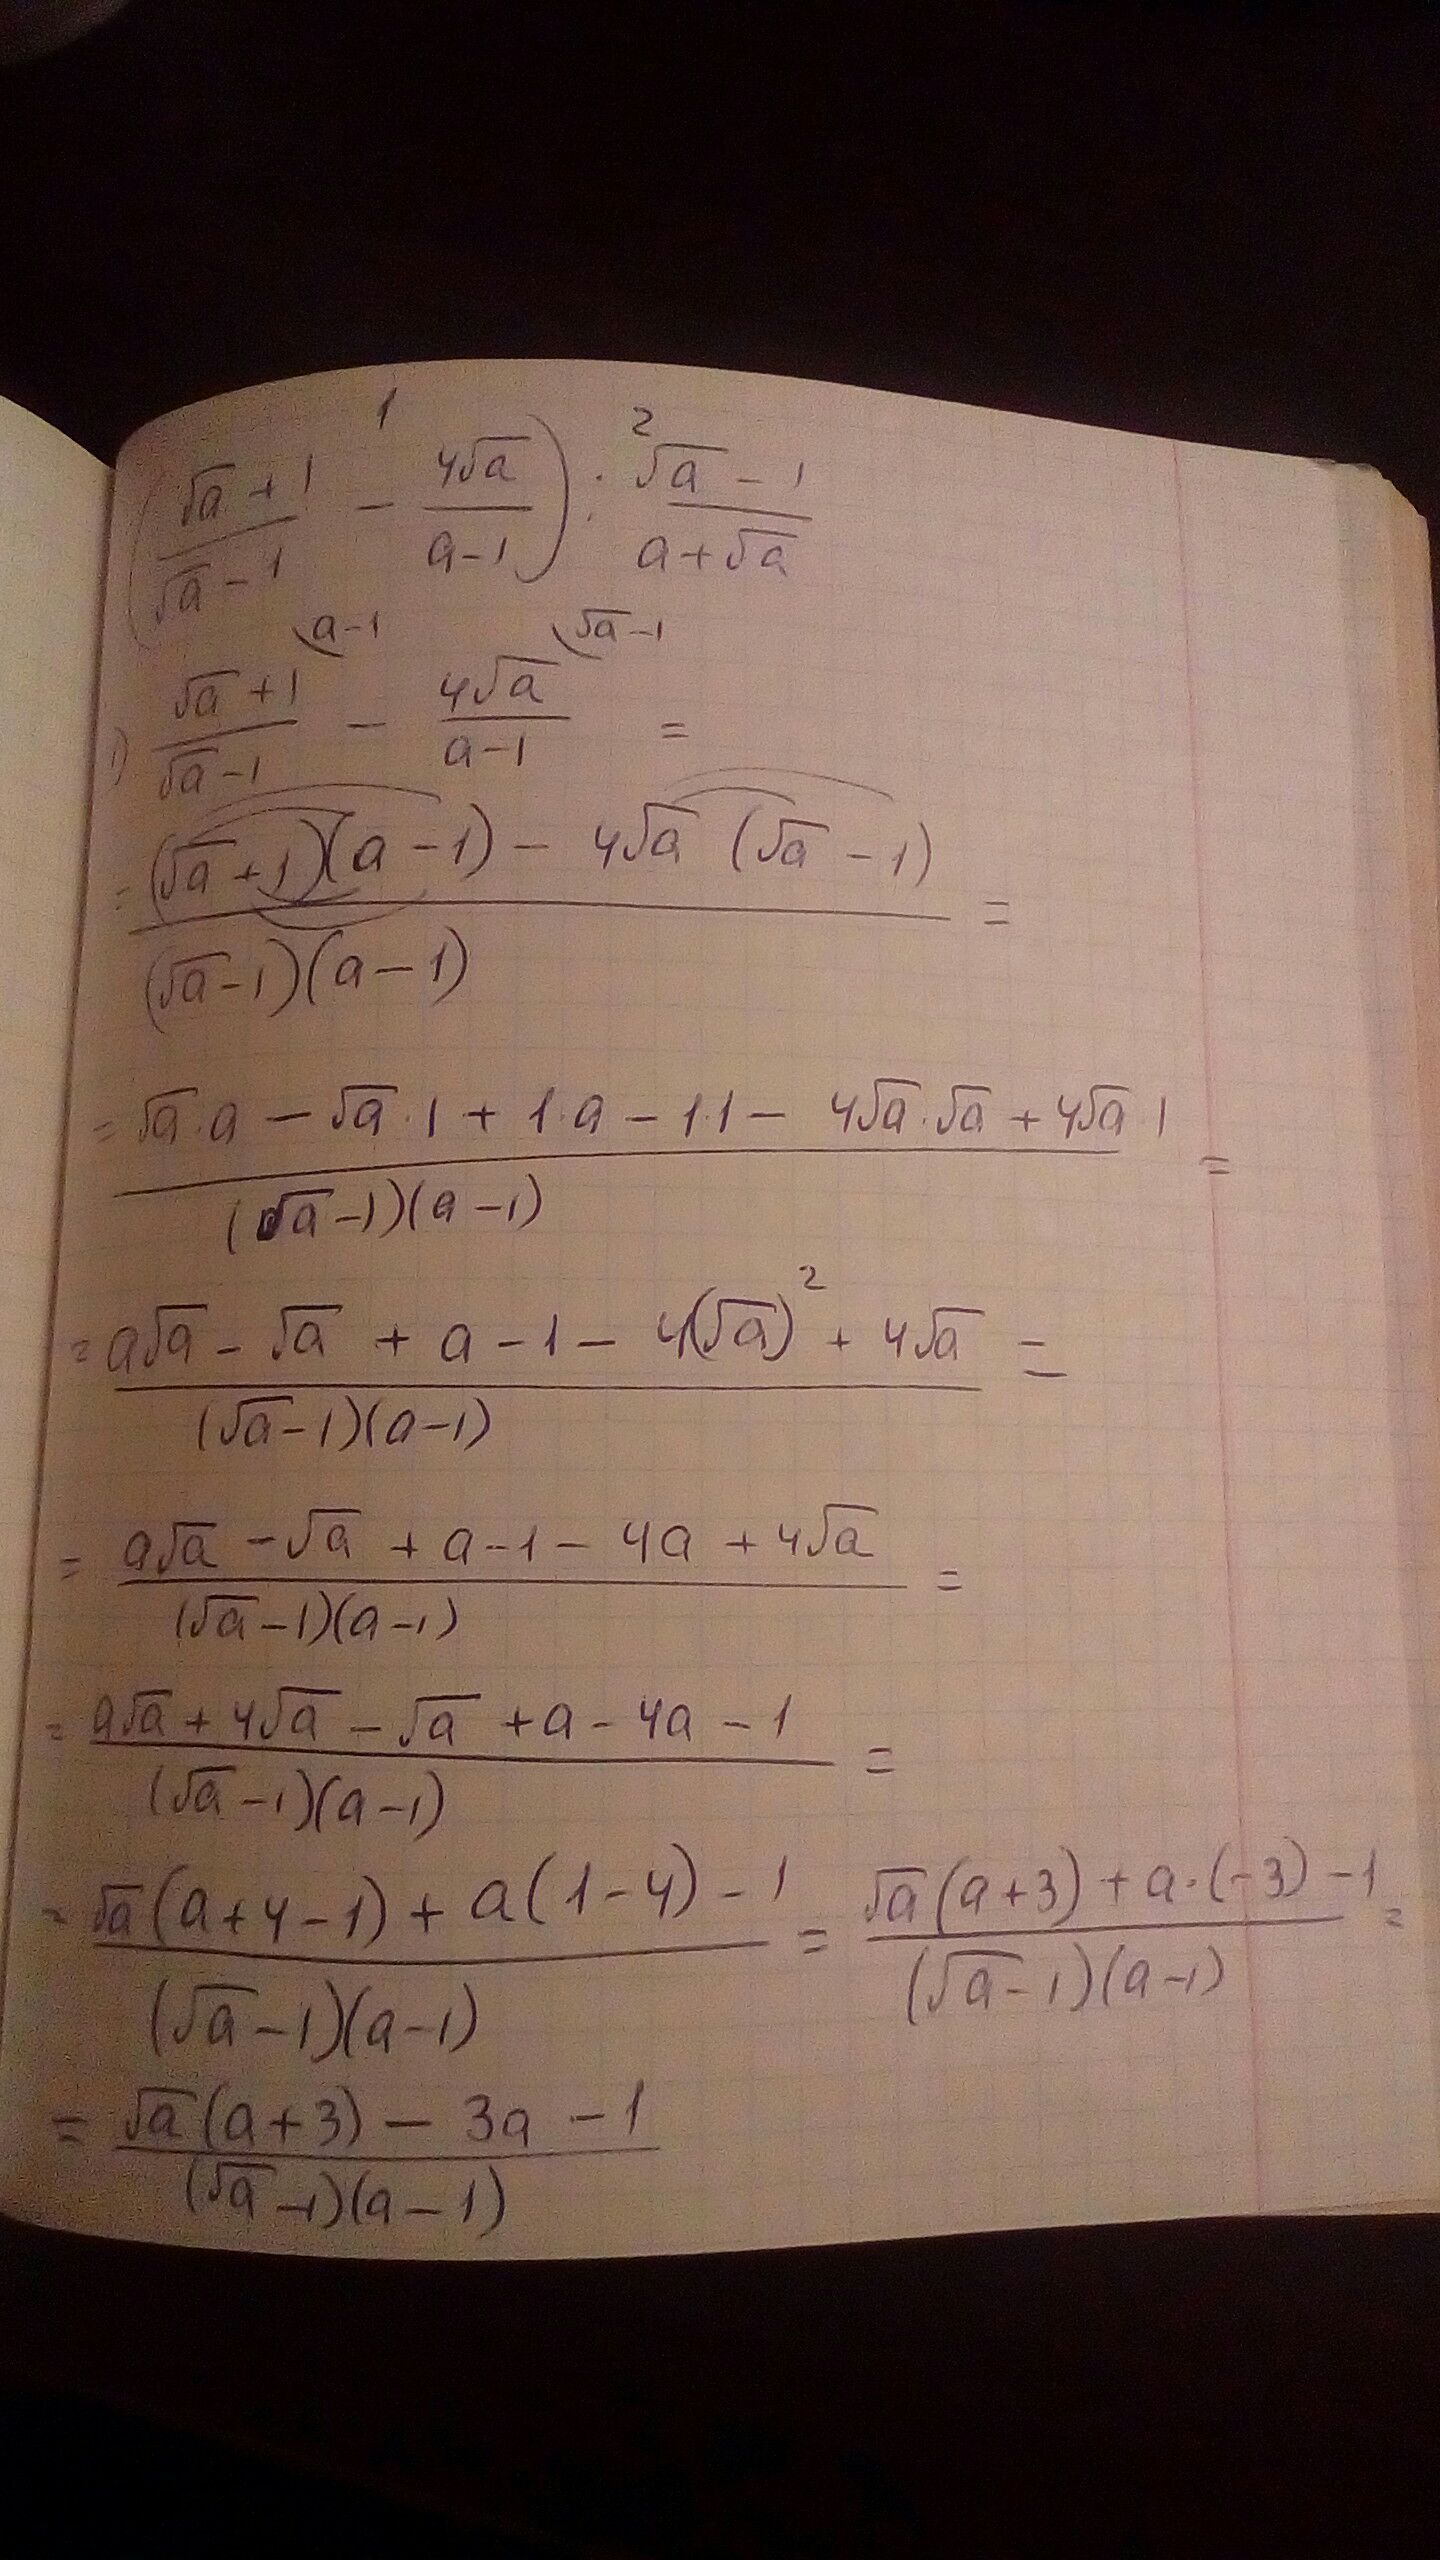 1 2
(√a + 1 / √a - 1 - 4√a / a - 1) : √a - 1 / a + √a
1) √a + 1 / √a - 1 (a - 1 - 4√a / a - 1 (√a - 1 =
= (√a + 1)(a - 1) - 4√a (√a - 1) / (√a - 1)(a - 1) =
= √a · a - √a · 1 + 1 · a - 1 · 1 - 4√a · √a + 4√a · 1 / (√a - 1)(a - 1) =
= a√a - √a + a - 1 - 4(√a)² + 4√a / (√a - 1)(a - 1) =
= a√a - √a + a - 1 - 4a + 4√a / (√a - 1)(a - 1) =
= a√a + 4√a - √a + a - 4a - 1 / (√a - 1)(a - 1) =
= √a (a + 4 - 1) + a (1 - 4) - 1 / (√a - 1)(a - 1) = √a (a + 3) + a · (-3) - 1 / (√a - 1)(a - 1) =
= √a (a + 3) - 3a - 1 / (√a - 1)(a - 1)